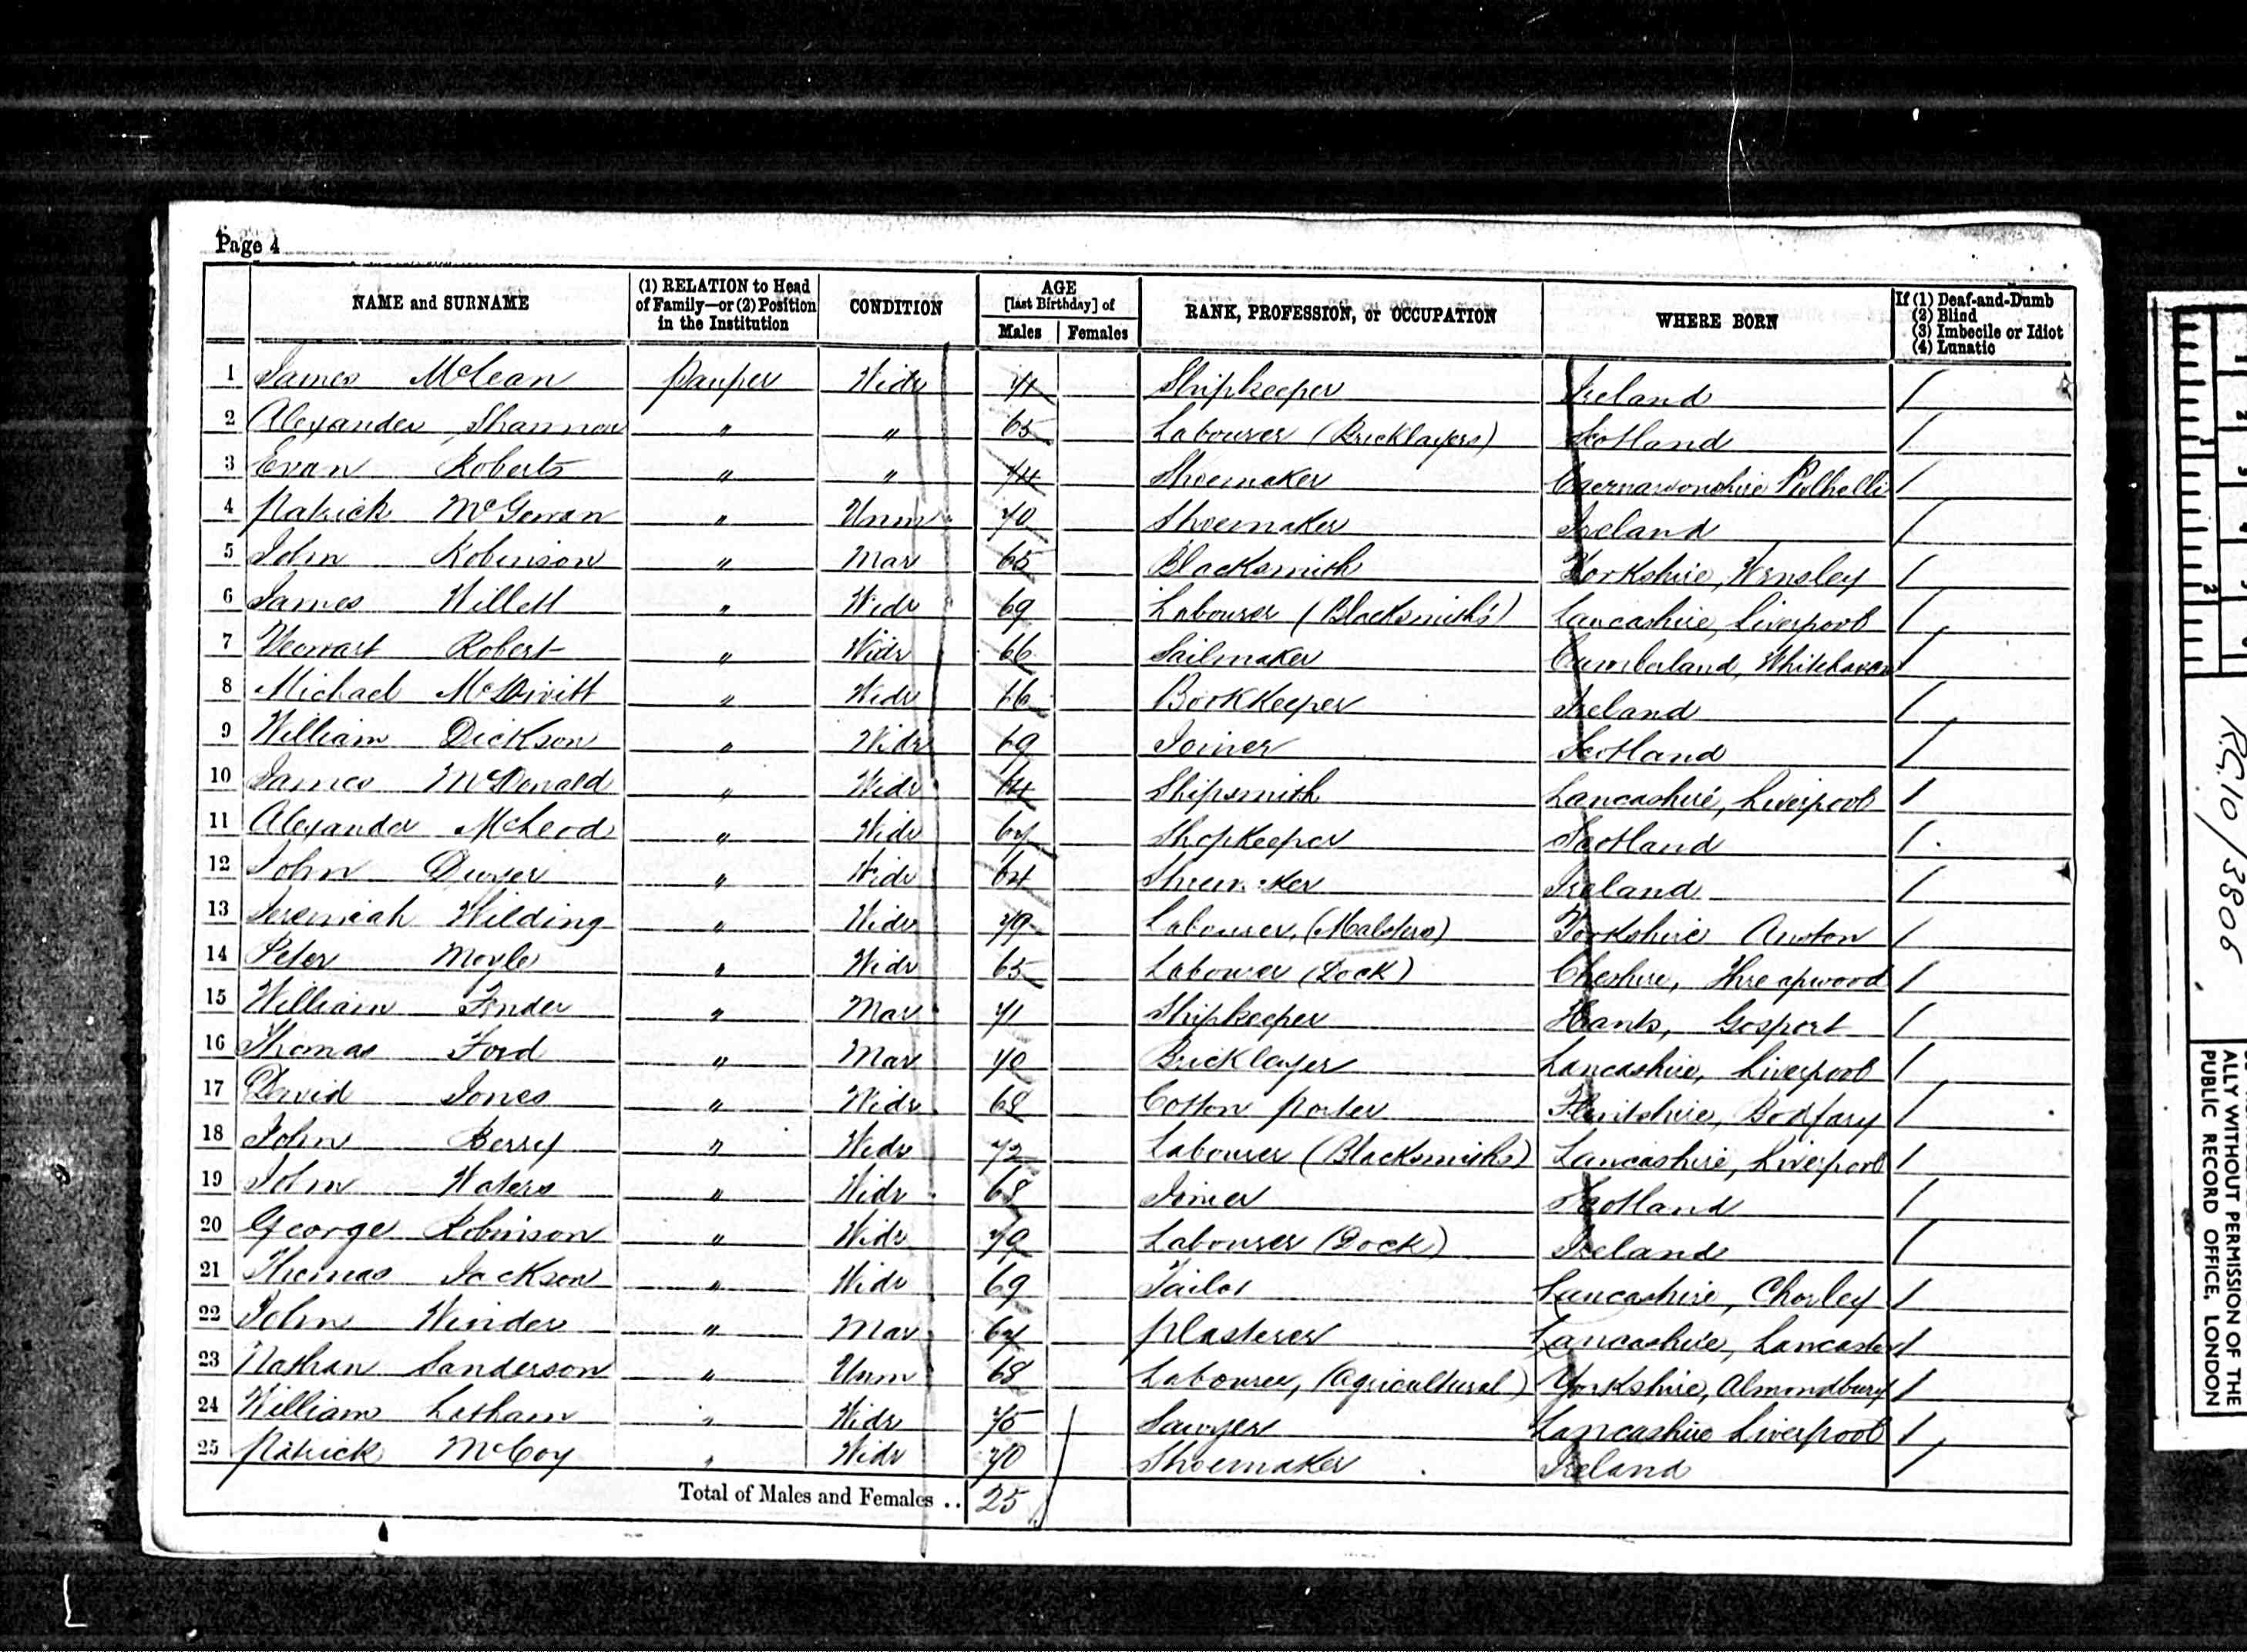 Page 4
NAME and SURNAME | (1) RELATION to Head of Family—or (2) Position in the Institution | CONDITION | AGE [last Birthday] of Males | Females | RANK, PROFESSION, or OCCUPATION | WHERE BORN | If (1) Deaf-and-Dumb (2) Blind (3) Imbecile or Idiot (4) Lunatic
1 James McLean Pauper Widr 71 Shipkeeper Ireland
2 Alexander Shannon " " 65 Labourer (Bricklayers) Scotland
3 Evan Roberts " " 74 Shoemaker Caernarvonshire Pwlhelli
4 Patrick McGowan " Unm 70 Shoemaker Ireland
5 John Robinson " Mar 65 Blacksmith Yorkshire, Wensley
6 James Willett " Widr 69 Labourer (Blacksmith's) Lancashire, Liverpool
7 Robert " Widr 66 Sailmaker Cumberland, Whitehaven
8 Michael McDivitt " Widr 66 Bookkeeper Ireland
9 William Dickson " Widr 69 Joiner Scotland
10 James McDonald " Widr 64 Shipsmith Lancashire, Liverpool
11 Alexander McLeod " Widr 67 Shopkeeper Scotland
12 John Dwyer " Widr 64 Shoemaker Ireland
13 Jeremiah Wilding " Widr 79 Labourer, (Malsters) Yorkshire
14 Peter Moyle " Widr 65 Labourer (Dock) Cheshire, Threapwood
15 William Fender " Mar 71 Shipkeeper Hants, Gosport
16 Thomas Ford " Mar 70 Bricklayer Lancashire, Liverpool
17 David Jones " Widr 68 Cotton Porter Flintshire, Bodfary
18 John Berry " Widr 72 Labourer (Blacksmiths) Lancashire, Liverpool
19 John Waters " Widr 68 Joiner Scotland
20 George Robinson " Widr 79 Labourer (Dock) Ireland
21 Thomas Jackson " Widr 69 Tailor Lancashire, Chorley
22 John Winder " Mar 67 Plasterer Lancashire, Lancaster
23 Nathan Sanderson " Unm 68 Labourer, (Agricultural) Yorkshire, Almondbury
24 William Latham " Widr 75 Sawyer Lancashire Liverpool
25 Patrick McCoy " Widr 70 Shoemaker Ireland
Total of Males and Females .. 25
R.G.10/3806
ALLY WITHOUT PERMISSION OF THE
PUBLIC RECORD OFFICE, LONDON